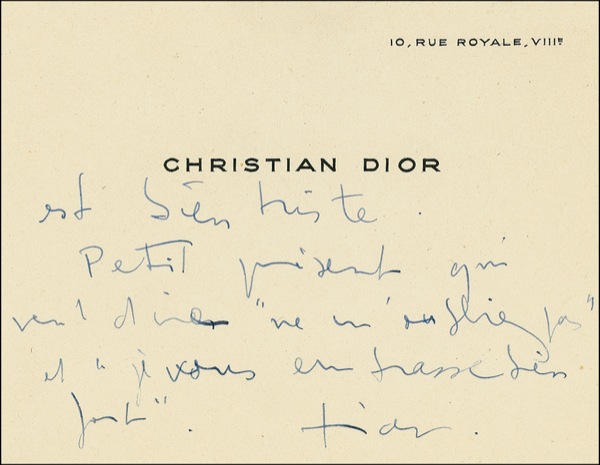 10, RUE ROYALE, VIIIE
CHRISTIAN DIOR
est bien triste.
Petit présent qui
veut dire "ne m'oubliez pas"
et "je vous embrasse très
fort".
tian.